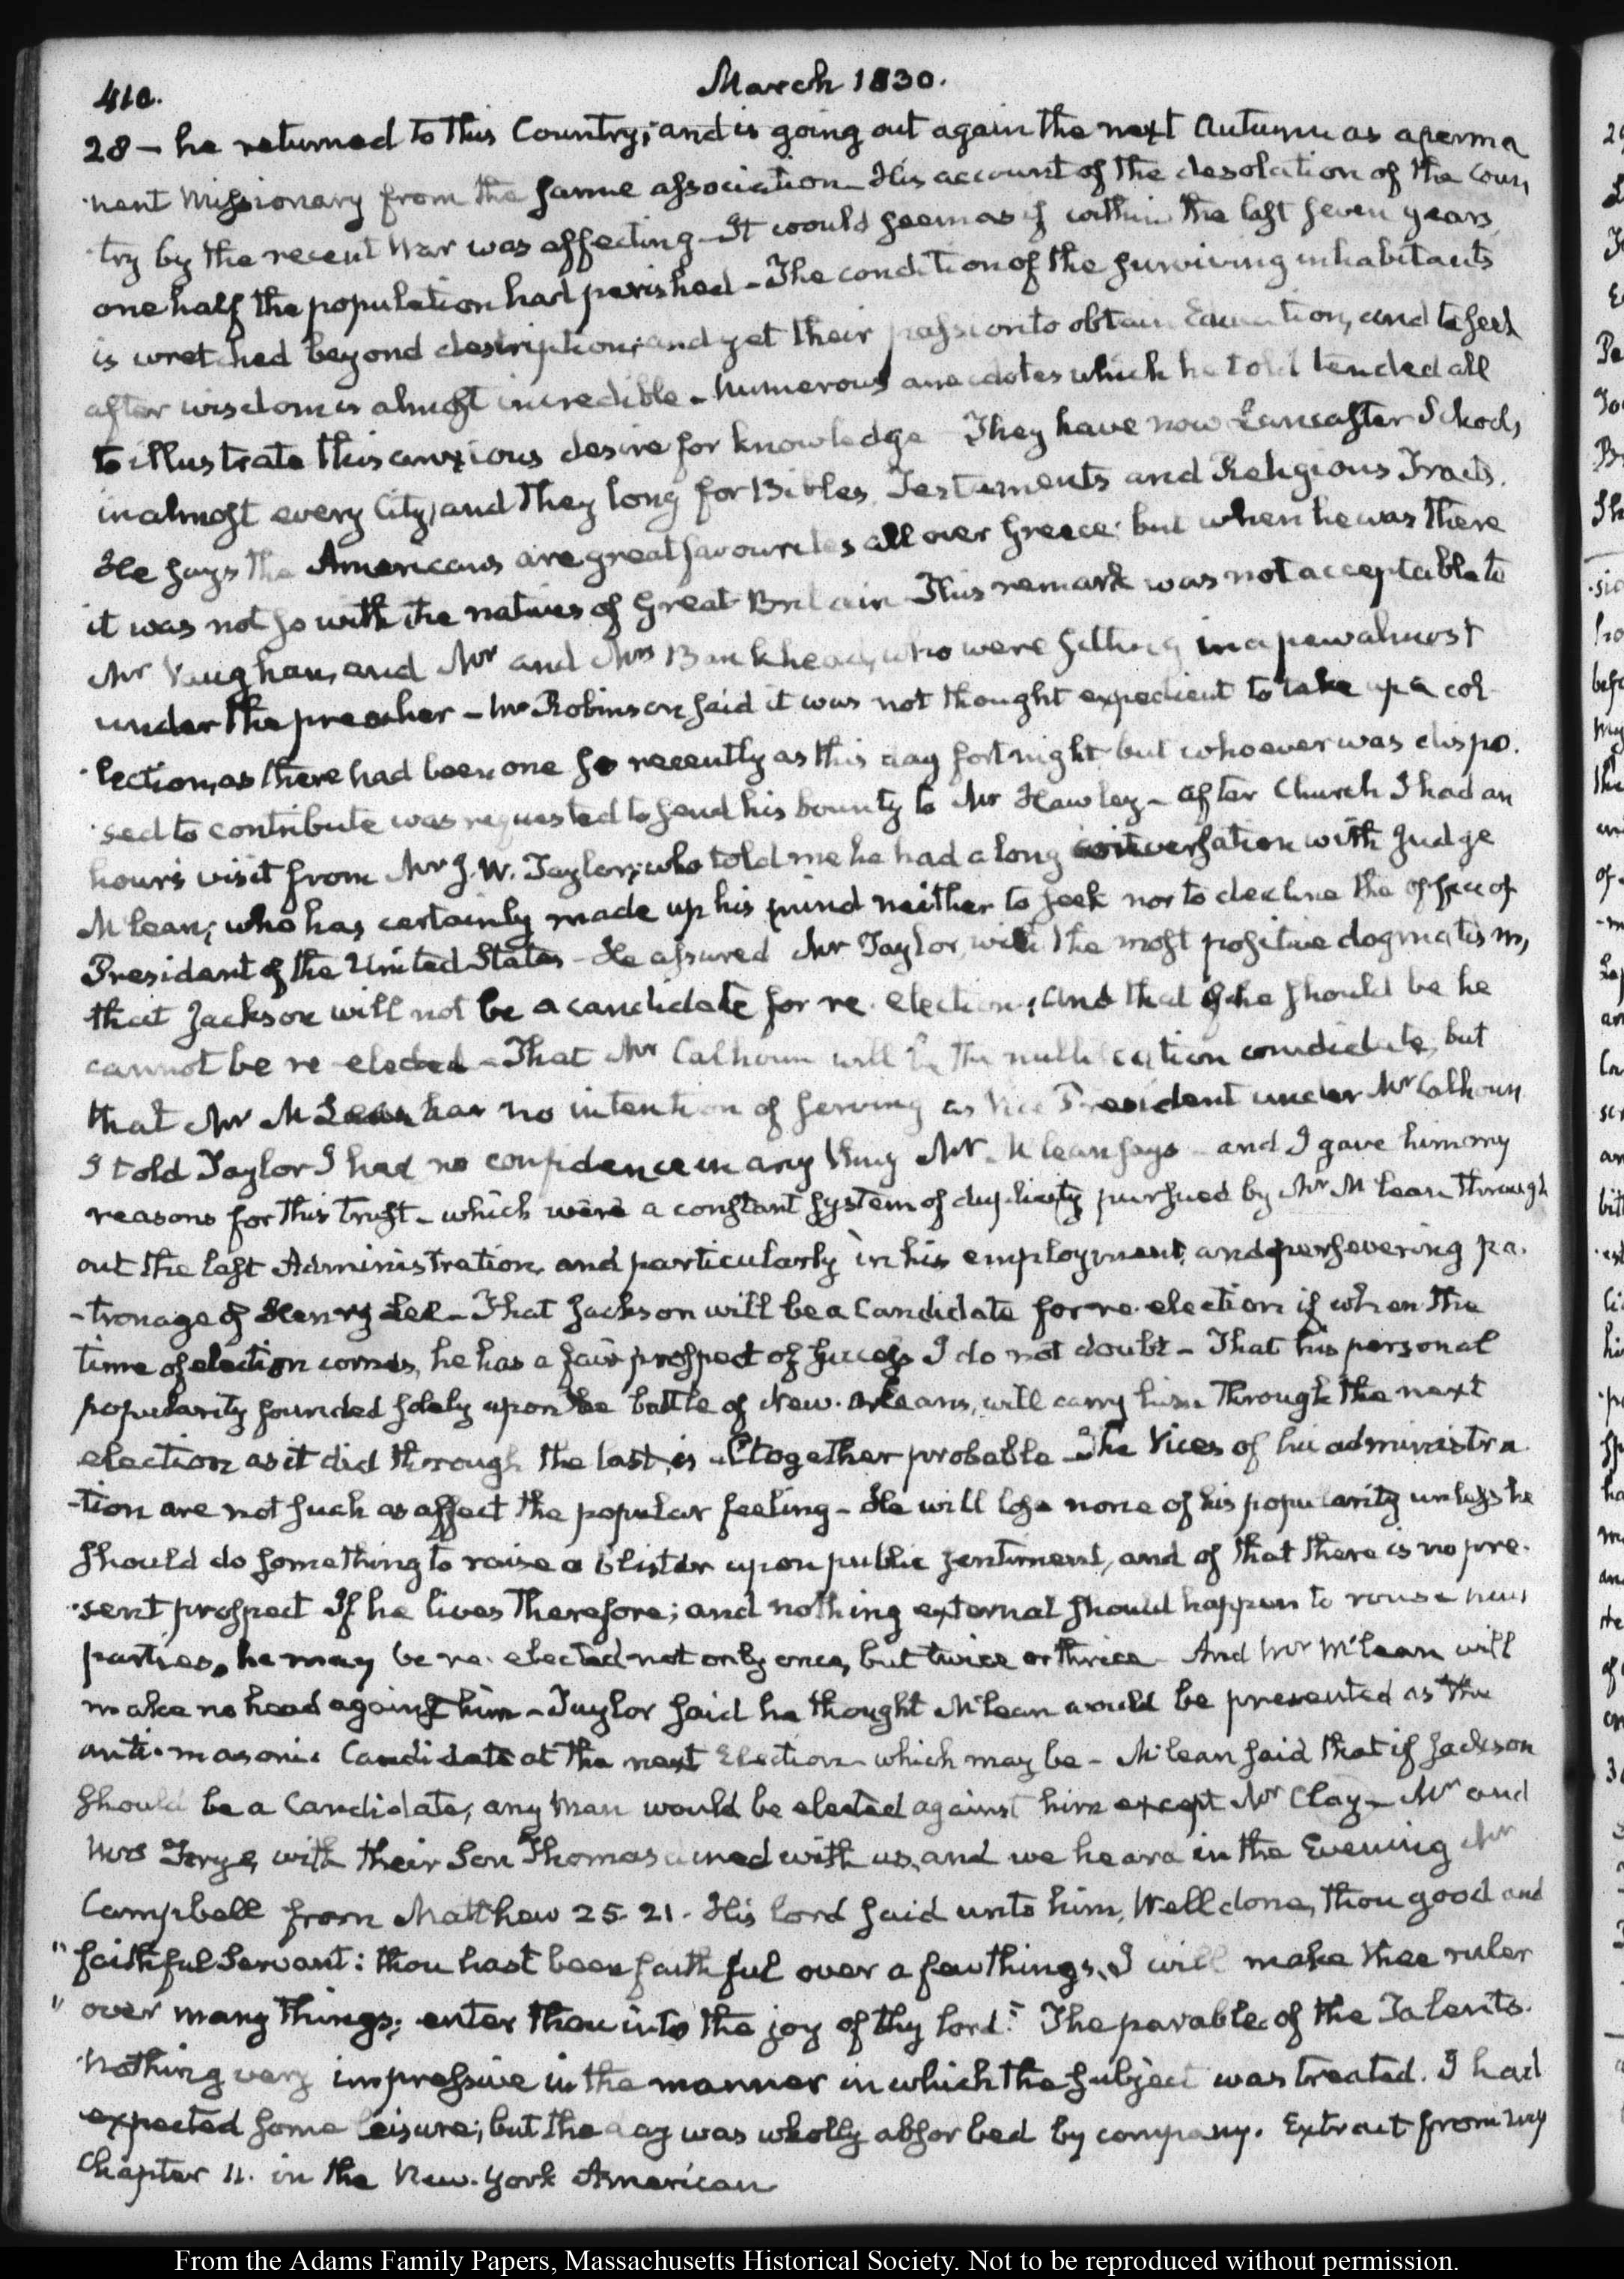 410.
March 1830.
28 — he returned to this Country; and is going out again the next Autumn as a perma
nent Missionary from the same association — His account of the desolation of the coun
try by the recent War was affecting — It would seem as if within the last seven years
one half the population had perished — The condition of the surviving inhabitants
is wretched beyond description; and yet their passion to obtain Education, and to seek
after wisdom is almost incredible — Numerous anecdotes which he told tended all
to illustrate this anxious desire for knowledge They have now Lancaster Schools
in almost every City, and they long for Bibles, Testaments and Religious Tracts.
He says the Americans are great favourites all over Greece; but when he was there
it was not so with the natives of Great Britain — This remark was not acceptable to
Mr Vaughan, and Mr and Mrs Bankhead, who were sitting in a pew almost
under the preacher — Mr Robinson said it was not thought expedient to take up a col
lection, as there had been one so recently as this day fortnight but whoever was dispo
sed to contribute was requested to send his bounty to Mr Hawley — After Church I had an
hour's visit from Mr J. W. Taylor; who told me he had a long conversation with Judge
M'lean; who has certainly made up his mind neither to seek nor to decline the office of
President of the United States — He assured Mr Taylor with the most positive dogmatism,
that Jackson will not be a candidate for re-election; and that if he should be he
cannot be re-elected — That Mr Calhoun will be the nullification candidate, but
that Mr M'Lean has no intention of serving as Vice President under Mr Calhoun
I told Taylor I had no confidence in any thing Mr M'lean says — and I gave him my
reasons for this trust — which were a constant system of duplicity pursued by Mr M'lean through
out the last Administration, and particularly in his employment, and persevering pa
-tronage of Henry Lee — That Jackson will be a Candidate for re-election if when the
time of election comes, he has a fair prospect of success I do not doubt — That his personal
popularity founded solely upon the battle of New-Orleans, will carry him through the next
election as it did through the last, is altogether probable — The Vices of his administra
-tion are not such as affect the popular feeling — He will lose none of his popularity unless he
should do something to raise a blister upon public sentiment, and of that there is no pre
sent prospect If he lives therefore; and nothing external should happen to rouse new
parties, he may be re-elected not only once, but twice or thrice — And Mr M'lean will
make no head against him — Taylor said he thought M'lean would be presented as the
anti-masonic Candidate at the next Election — which may be — M'lean said that if Jackson
should be a Candidate, any man would be elected against him except Mr Clay — Mr and
Mrs Frye, with their Son Thomas dined with us, and we heard in the Evening Mr
Campbell from Matthew 25. 21. His lord said unto him, Well done, thou good and
" faithful Servant: thou hast been faithful over a few things, I will make thee ruler
" over many things; enter thou into the joy of thy lord." The parable of the Talents.
Nothing very impressive in the manner in which the subject was treated. I had
expected some leisure; but the day was wholly absorbed by company. Extract from my
Chapter 11. in the New-York American
From the Adams Family Papers, Massachusetts Historical Society. Not to be reproduced without permission.